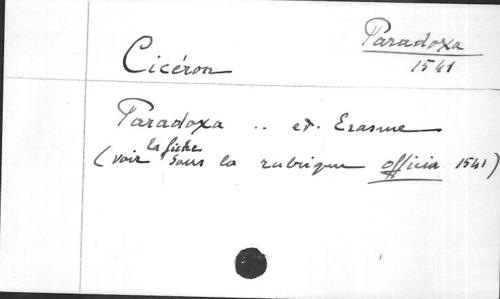 Paradoxa
1541
Cicéron
Paradoxa .. ed. Erasme
(voir la fiche sous la rubrique officia 1541)